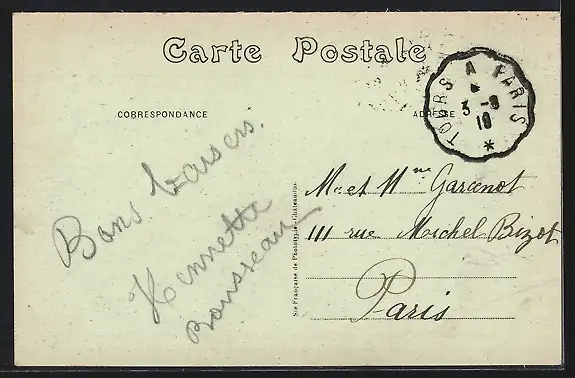 Carte Postale
CORRESPONDANCE
ADRESSE
TOURS A PARIS
3 - 9
19
*
Bons baisers.
Hennette
Bousseau
Mr et Mme Garcenot
111 rue Michel Bizot
Paris
Sté Française de Phototypie, Châteaudun